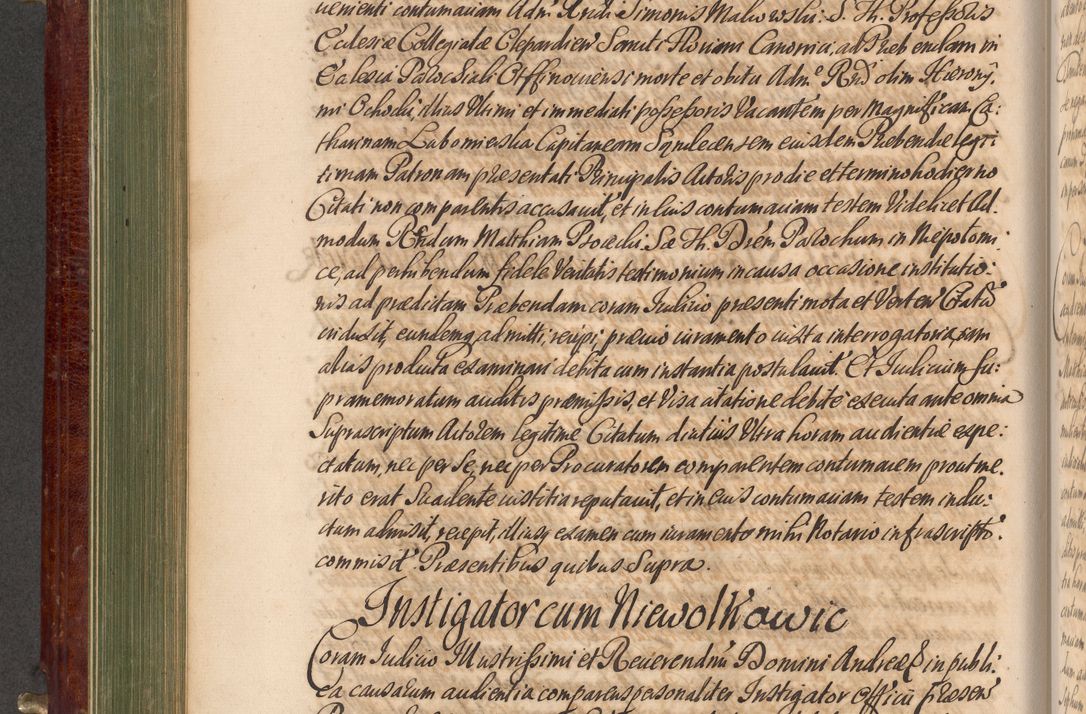 uenienti contumaciam Adm. Rndi Simonis Makowski: S. Th. Professoris
Eclesiæ Collegiatæ Clepardien Sancti Floriani Canonici, ad Præbendam in
Eclesia Parochiali Offinouiensi morte et obitu Adm. Rnd olim Hierony:
mi Ochocki, illius Vltimi et immediati possessoris Vacantem per Magnificam Ca:
tharinam Lubomierska Capitaneam Sandecensem eiusdem Præbendæ legi:
timam Patronam præsentati Principalis Actoris pro die et termino hodierno
Citati non comparentis accusauit, et in eius contumaciam testem Videlicet Ad:
modum Rndum Matthiam Procedu: Sæ Th. Drem Parochum in Niepolomi:
ce, ad perhibendum fidele Veritatis testimonium in causa occasione institutio:
nis ad prædictam Præbendam coram Iudicio præsenti mota et Verten Citatū
induxit, eundemq. admitti, recipi, præuio iuramento iuxta interrogatoria, eam
alias producta examinari debita cum instantia postulauit. Et Iudicium su:
pramemoratum auditis præmissis, et Visa citatione debite executa ante omnia
Suprascriptum Actorem legitime Citatum diutius Vltra horam audientiæ expe:
ctatum, nec per Se, nec per Procuratorem comparentem contumacem prout me:
rito erat Suadente iustitia reputauit, et in eius contumaciam testem indu:
ctum admisit, recepit, illiusq. examen cum iuramento mihi Notario infrascripto
commisit. Præsentibus quibus Supra.
Instigator cum Niewolkowic
Coram Iudicio Illustrissimi et Reuerendni Domini Andreæ in publi:
ca causarum audientia comparens personaliter Instigator Officii præsen